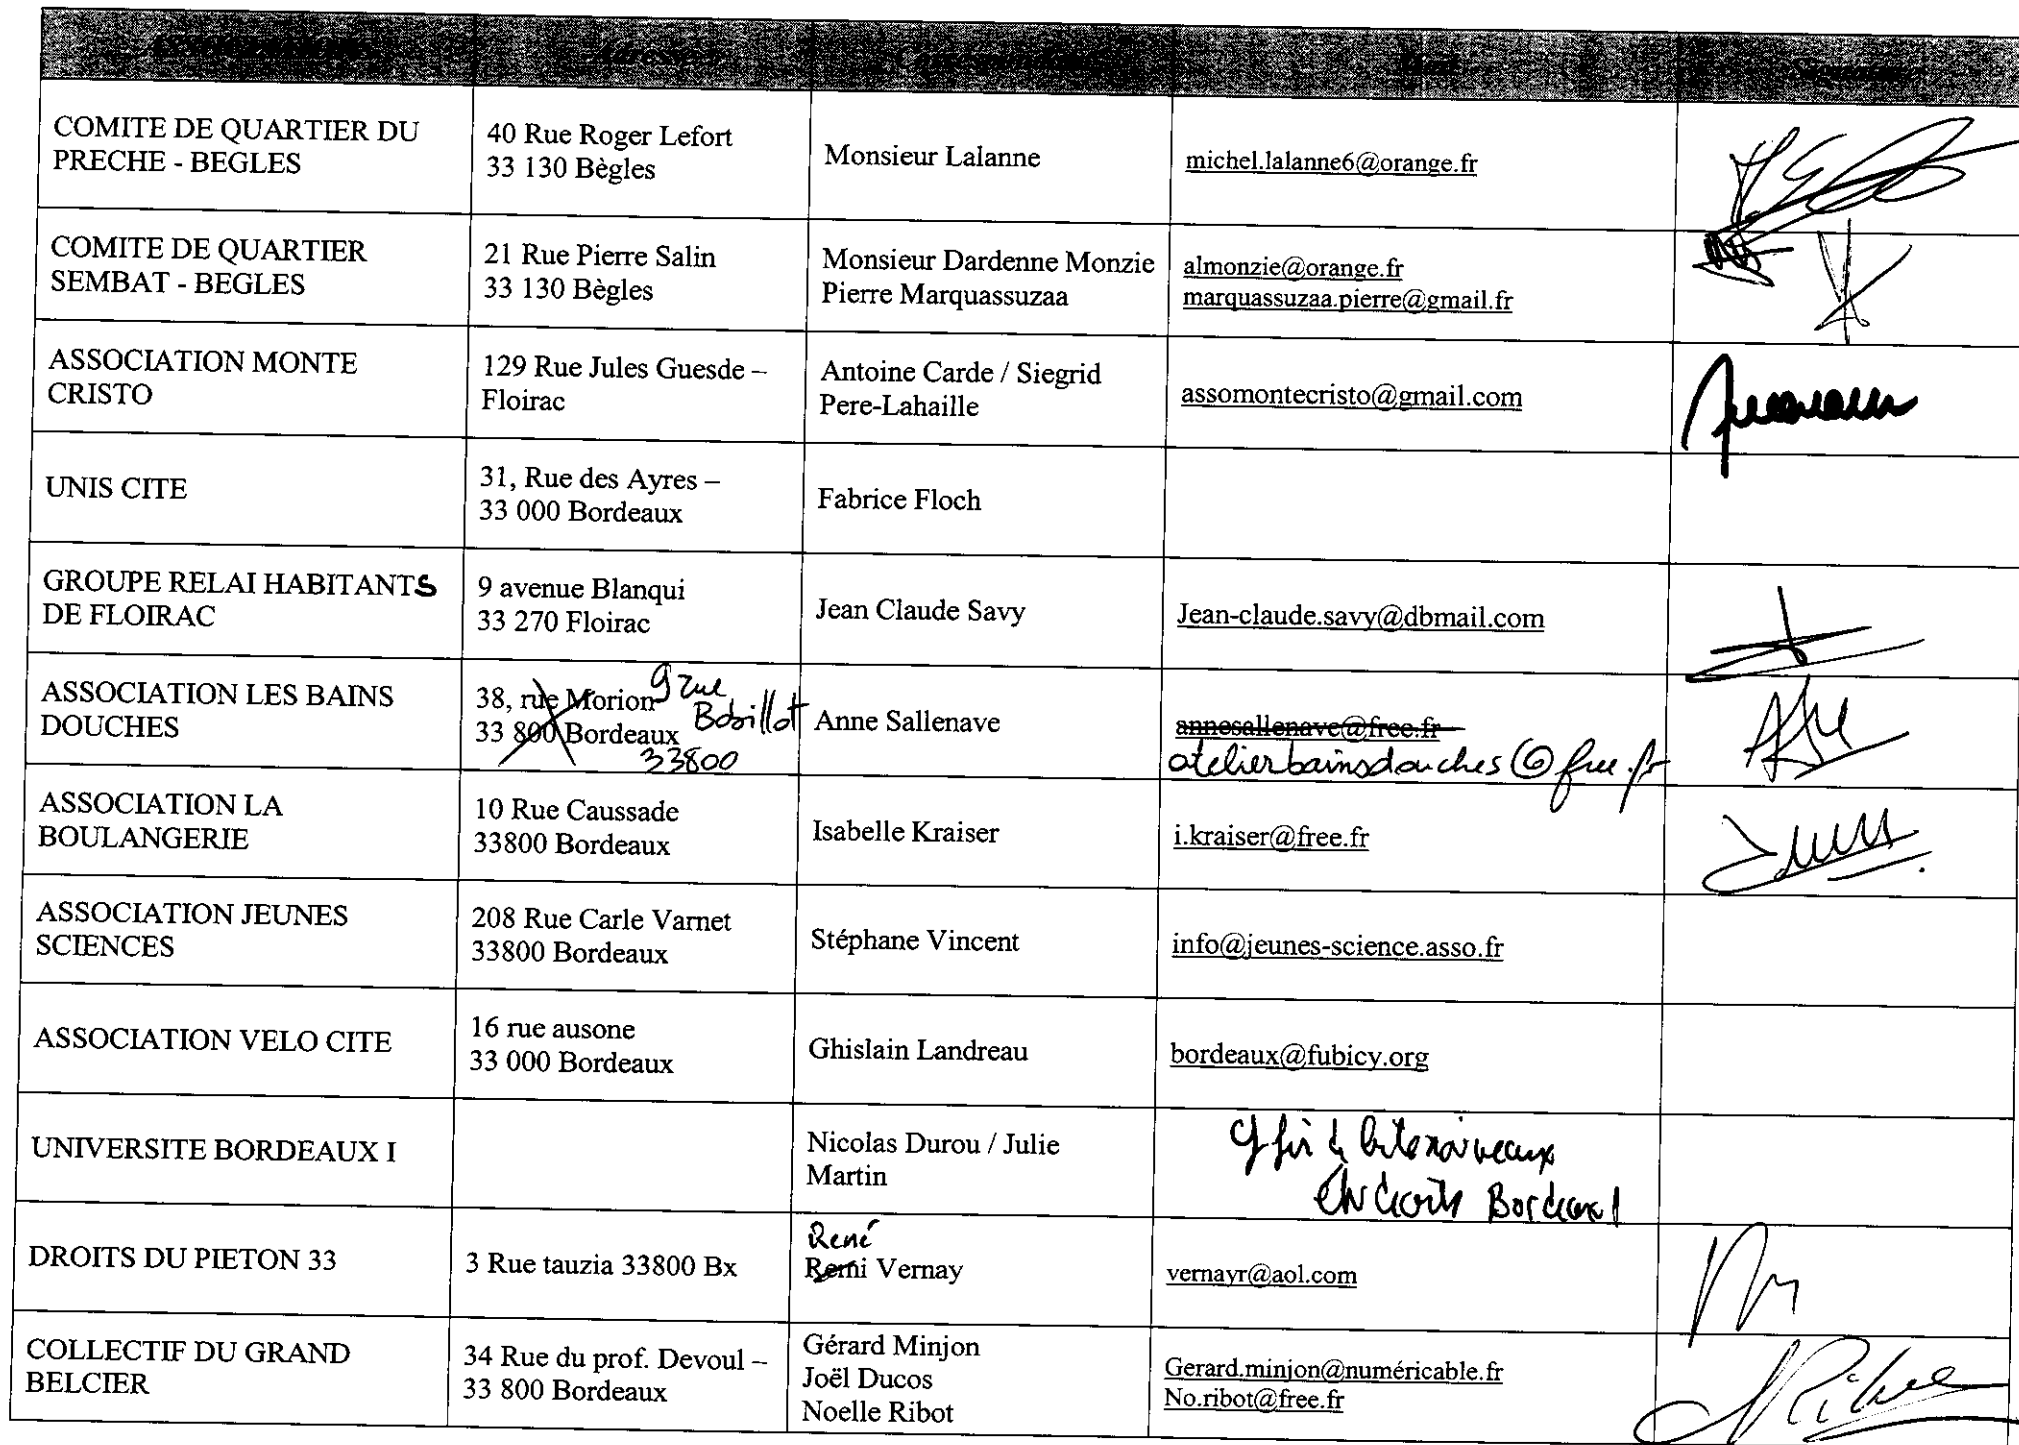 COMITE DE QUARTIER DU
PRECHE - BEGLES
40 Rue Roger Lefort
33 130 Bègles
Monsieur Lalanne
michel.lalanne6@orange.fr
COMITE DE QUARTIER
SEMBAT - BEGLES
21 Rue Pierre Salin
33 130 Bègles
Monsieur Dardenne Monzie
Pierre Marquassuzaa
almonzie@orange.fr
marquassuzaa.pierre@gmail.fr
ASSOCIATION MONTE
CRISTO
129 Rue Jules Guesde –
Floirac
Antoine Carde / Siegrid
Pere-Lahaille
assomontecristo@gmail.com
UNIS CITE
31, Rue des Ayres –
33 000 Bordeaux
Fabrice Floch
GROUPE RELAI HABITANTS
DE FLOIRAC
9 avenue Blanqui
33 270 Floirac
Jean Claude Savy
Jean-claude.savy@dbmail.com
ASSOCIATION LES BAINS
DOUCHES
38, rue Morion
33 800 Bordeaux
9 rue
Bobillot
33800
Anne Sallenave
annesallenave@free.fr
atelierbainsdouches@free.fr
ASSOCIATION LA
BOULANGERIE
10 Rue Caussade
33800 Bordeaux
Isabelle Kraiser
i.kraiser@free.fr
ASSOCIATION JEUNES
SCIENCES
208 Rue Carle Varnet
33800 Bordeaux
Stéphane Vincent
info@jeunes-science.asso.fr
ASSOCIATION VELO CITE
16 rue ausone
33 000 Bordeaux
Ghislain Landreau
bordeaux@fubicy.org
UNIVERSITE BORDEAUX I
Nicolas Durou / Julie
Martin
Bordeaux 1
DROITS DU PIETON 33
3 Rue tauzia 33800 Bx
René
Remi Vernay
vernayr@aol.com
COLLECTIF DU GRAND
BELCIER
34 Rue du prof. Devoul –
33 800 Bordeaux
Gérard Minjon
Joël Ducos
Noelle Ribot
Gerard.minjon@numéricable.fr
No.ribot@free.fr